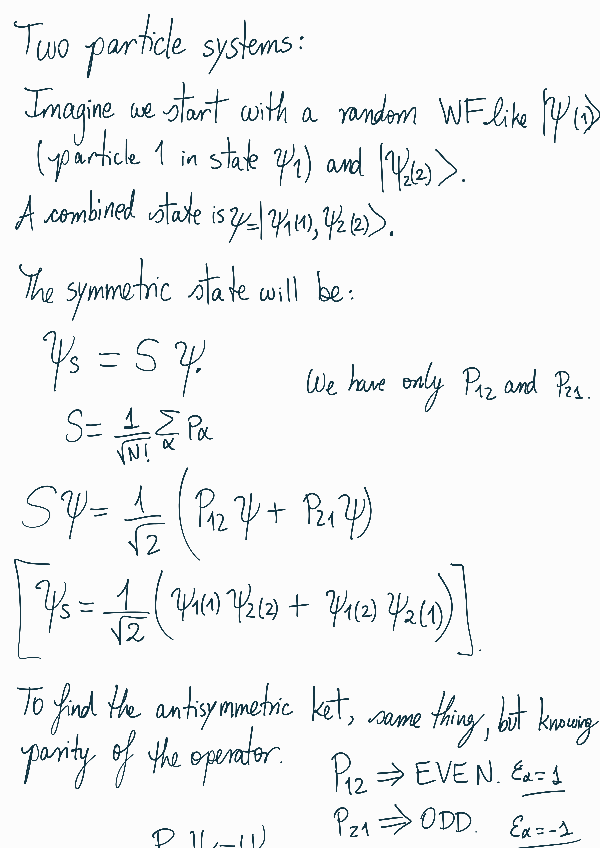 Two particle systems:
Imagine we start with a random WF like |ψ(1)⟩
(particle 1 in state ψ1) and |ψ2(2)⟩.
A combined state is ψ=|ψ1(1), ψ2(2)⟩.
The symmetric state will be:
ψs = S ψ.
We have only P12 and P21.
S= 1/√N! Σα Pα
Sψ= 1/√2 (P12 ψ + P21 ψ)
[ψs = 1/√2 (ψ1(1) ψ2(2) + ψ1(2) ψ2(1))].
To find the antisymmetric ket, same thing, but knowing
parity of the operator.
P12 ⇒ EVEN. εα=1
P21 ⇒ ODD. εα=-1